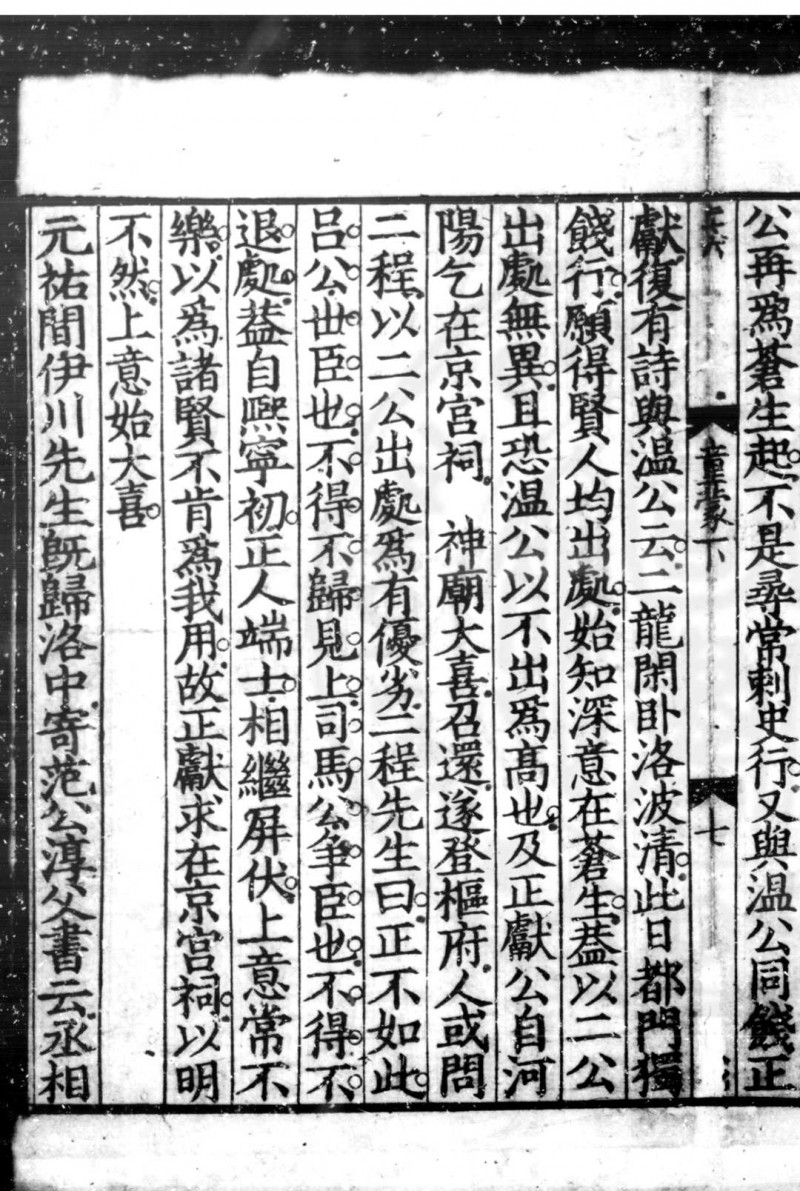 公再爲蒼生起不是尋常刺史行又與温公同餞正
童蒙下
七
獻復有詩與温公云二龍閑卧洛波清此日都門獨
餞行願得賢人均出處始知深意在蒼生葢以二公
出處無異且恐温公以不出爲髙也及正獻公自河
陽乞在京宫祠　神廟大喜召還遂登樞府人或問
二程以二公出處爲有優劣二程先生曰正不如此
吕公世臣也不得不歸見上司馬公争臣也不得不
退處葢自熈寧初正人端士相繼屏伏上意常不
樂以爲諸賢不肯爲我用故正獻求在京宫祠以明
不然上意始大喜
元祐間伊川先生旣歸洛中寄范公淳父書云丞相